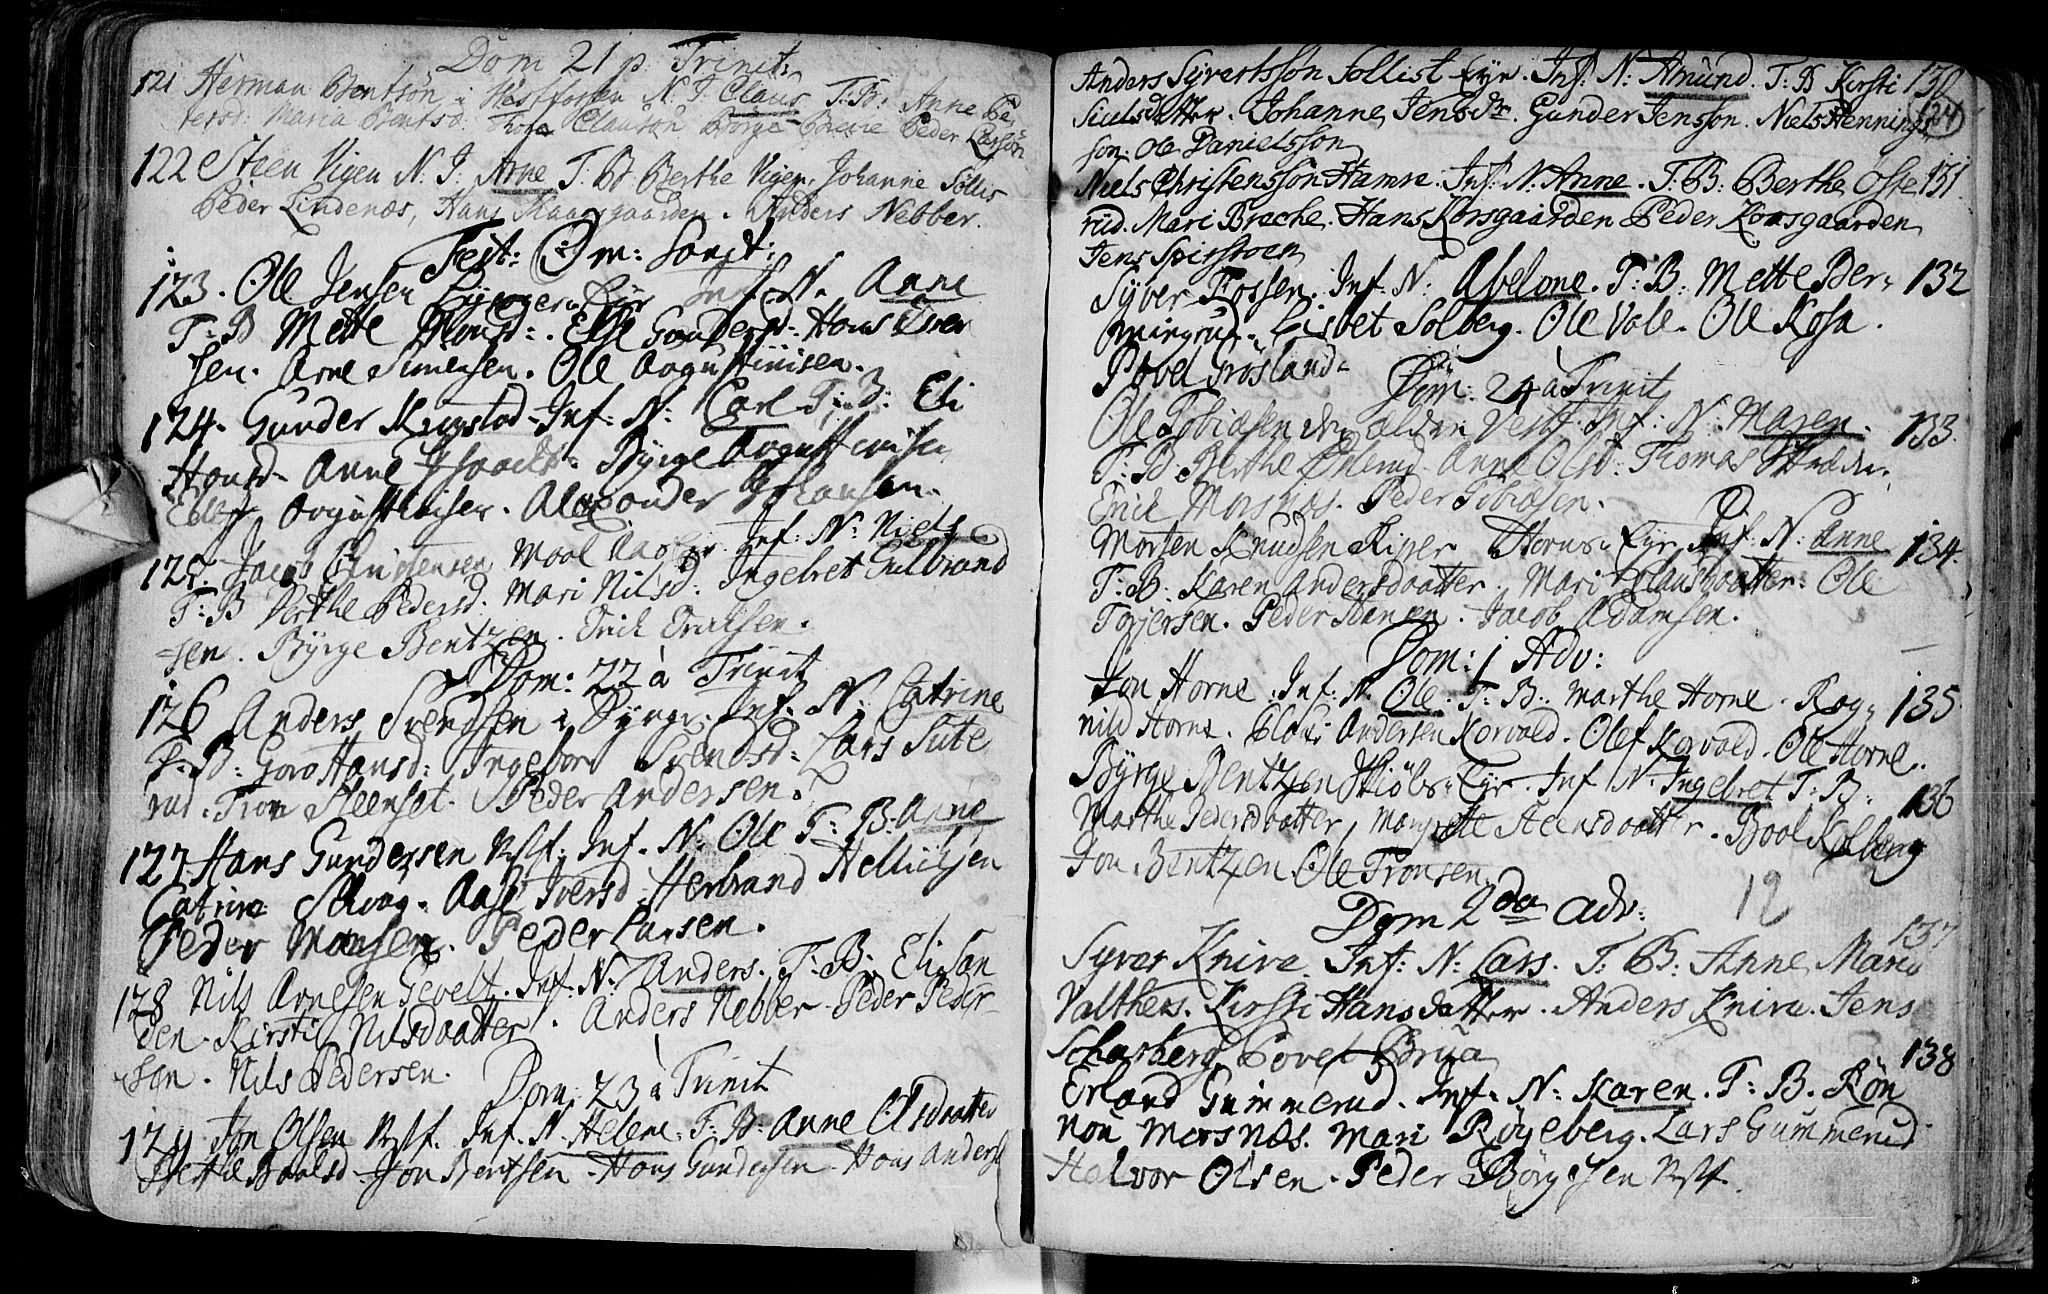 Dom 21 p. Trinit:
121 Herman Bentsön i Hestfossen N. I. Claus T. B: Anne Pe-
tersd: Maria Bentsd: Clausön Börge Peder Larsön
122 Steen Vigen N. I. Arne T. B Berthe Vigen, Johanne Sollis
Peder Lindenæs, Hans Kaarsgaarden. Anders Nebber.
Fest: Om: Sanct:
123. Ole Jensen Eÿr Inf. N. Anne
T: B Mette Else Gundersd: Hans Iver
sen. Arne Simensen. Ole Augustinisen.
124. Gunder Krogstad Inf: N: Carl T: B: Eli
Hansd. Anne Byrge Augustinisen
Augustinisen. Alexander Johansen.
125. Jacob Christensen Inf: N: Niels
T: B Berthe Pedersd. Mari Nilsd. Ingebret Gulbrand
sen. Byrge Bentzen. Erick Ericksen.
Dom: 22 à Trinit
126 Anders Svendsen i Inf. N: Catrine
T. B: Goro Hansd: Ingebor Svendsd: Lars Sute
rud. Tron Steenset. Peder Andersen.
127 Hans Gundersen Vestf. Inf. N: Ole T: B. Anne
Catrine Selvog. Aase Iversd. Herbrand Hellicksen
Peder Monsen. Peder Larsen.
128 Nils Arnesen Gevelt. Inf. N: Anders. T: B. Eli San
den. Kirsti Nilsdaatter. Anders Nebber. Peder Peder-
sen. Nils Pedersen.
Dom: 23 à Trinit
129 Jon Olsen Vestf. Inf. N. Helene. T: B: Anne Olsdaatter
Boolsd. Jon Bentsen. Hans Gundersen. Hans Anders
Anders Syvertssön Sollist Eyr. Inf: N: Amund. T: B Kirsti 130
Siulsdatter. Johanne Jensdtr. Gunder Jensson. Niels Hennings 124
son. Ole Danielsson
Niels Christensson Hamre. Inf: N: Anne. T: B: Berthe Öste 131
rud. Mari Breche. Hans Korsgaarden Peder Korsgaarden
Jens
Syver Fossen. Inf: N: Abelone. T: B: Mette Ber- 132
mingrud. Lisbet Solberg. Ole Vale. Ole Rosa.
Povel Grösland.
Dom: 24 à Trinit
Ole Tobiasen den ælder Vestf. Inf: N: Maren. 133
T: B: Berthe Anne Olsd: Thomas
Erick Morsnæs. Peder Tobiasen.
Morten Knudsen Horns Eyr. Inf: N: Anne 134.
T: B. Karen Andersdaatter. Mari Clausdaatter. Ole
Torjersen. Peder Hansen. Jacob Adamsen.
Dom: 1 Adv:
Jon Horne. Inf: N. Ole. T: B: Marthe Horne. Rag- 135
nild Horne. Claus Andersen Korvald. Olef Korvald. Ole Horne.
Byrge Bentzen Eyr. Inf N. Ingebret T: B: 136
Marthe Pedersdaatter, Margrette Steensdaatter. Bool Kolberg
Jon Bentzen. Ole Tronsen.
12
Dom 2da Adv:
137
Syver Knive. Inf: N: Lars. T: B: Anne Maria
Valthers. Kirsti Hansdatter. Anders Knive. Jens
Scharberg, Povel Brua 138
Erland Gummerud. Inf. N: Karen. T: B. Rön
nou Morsnæs. Mari Röyeberg. Lars Gummerud
Halvor Olsen. Peder Börgesen Vestf.